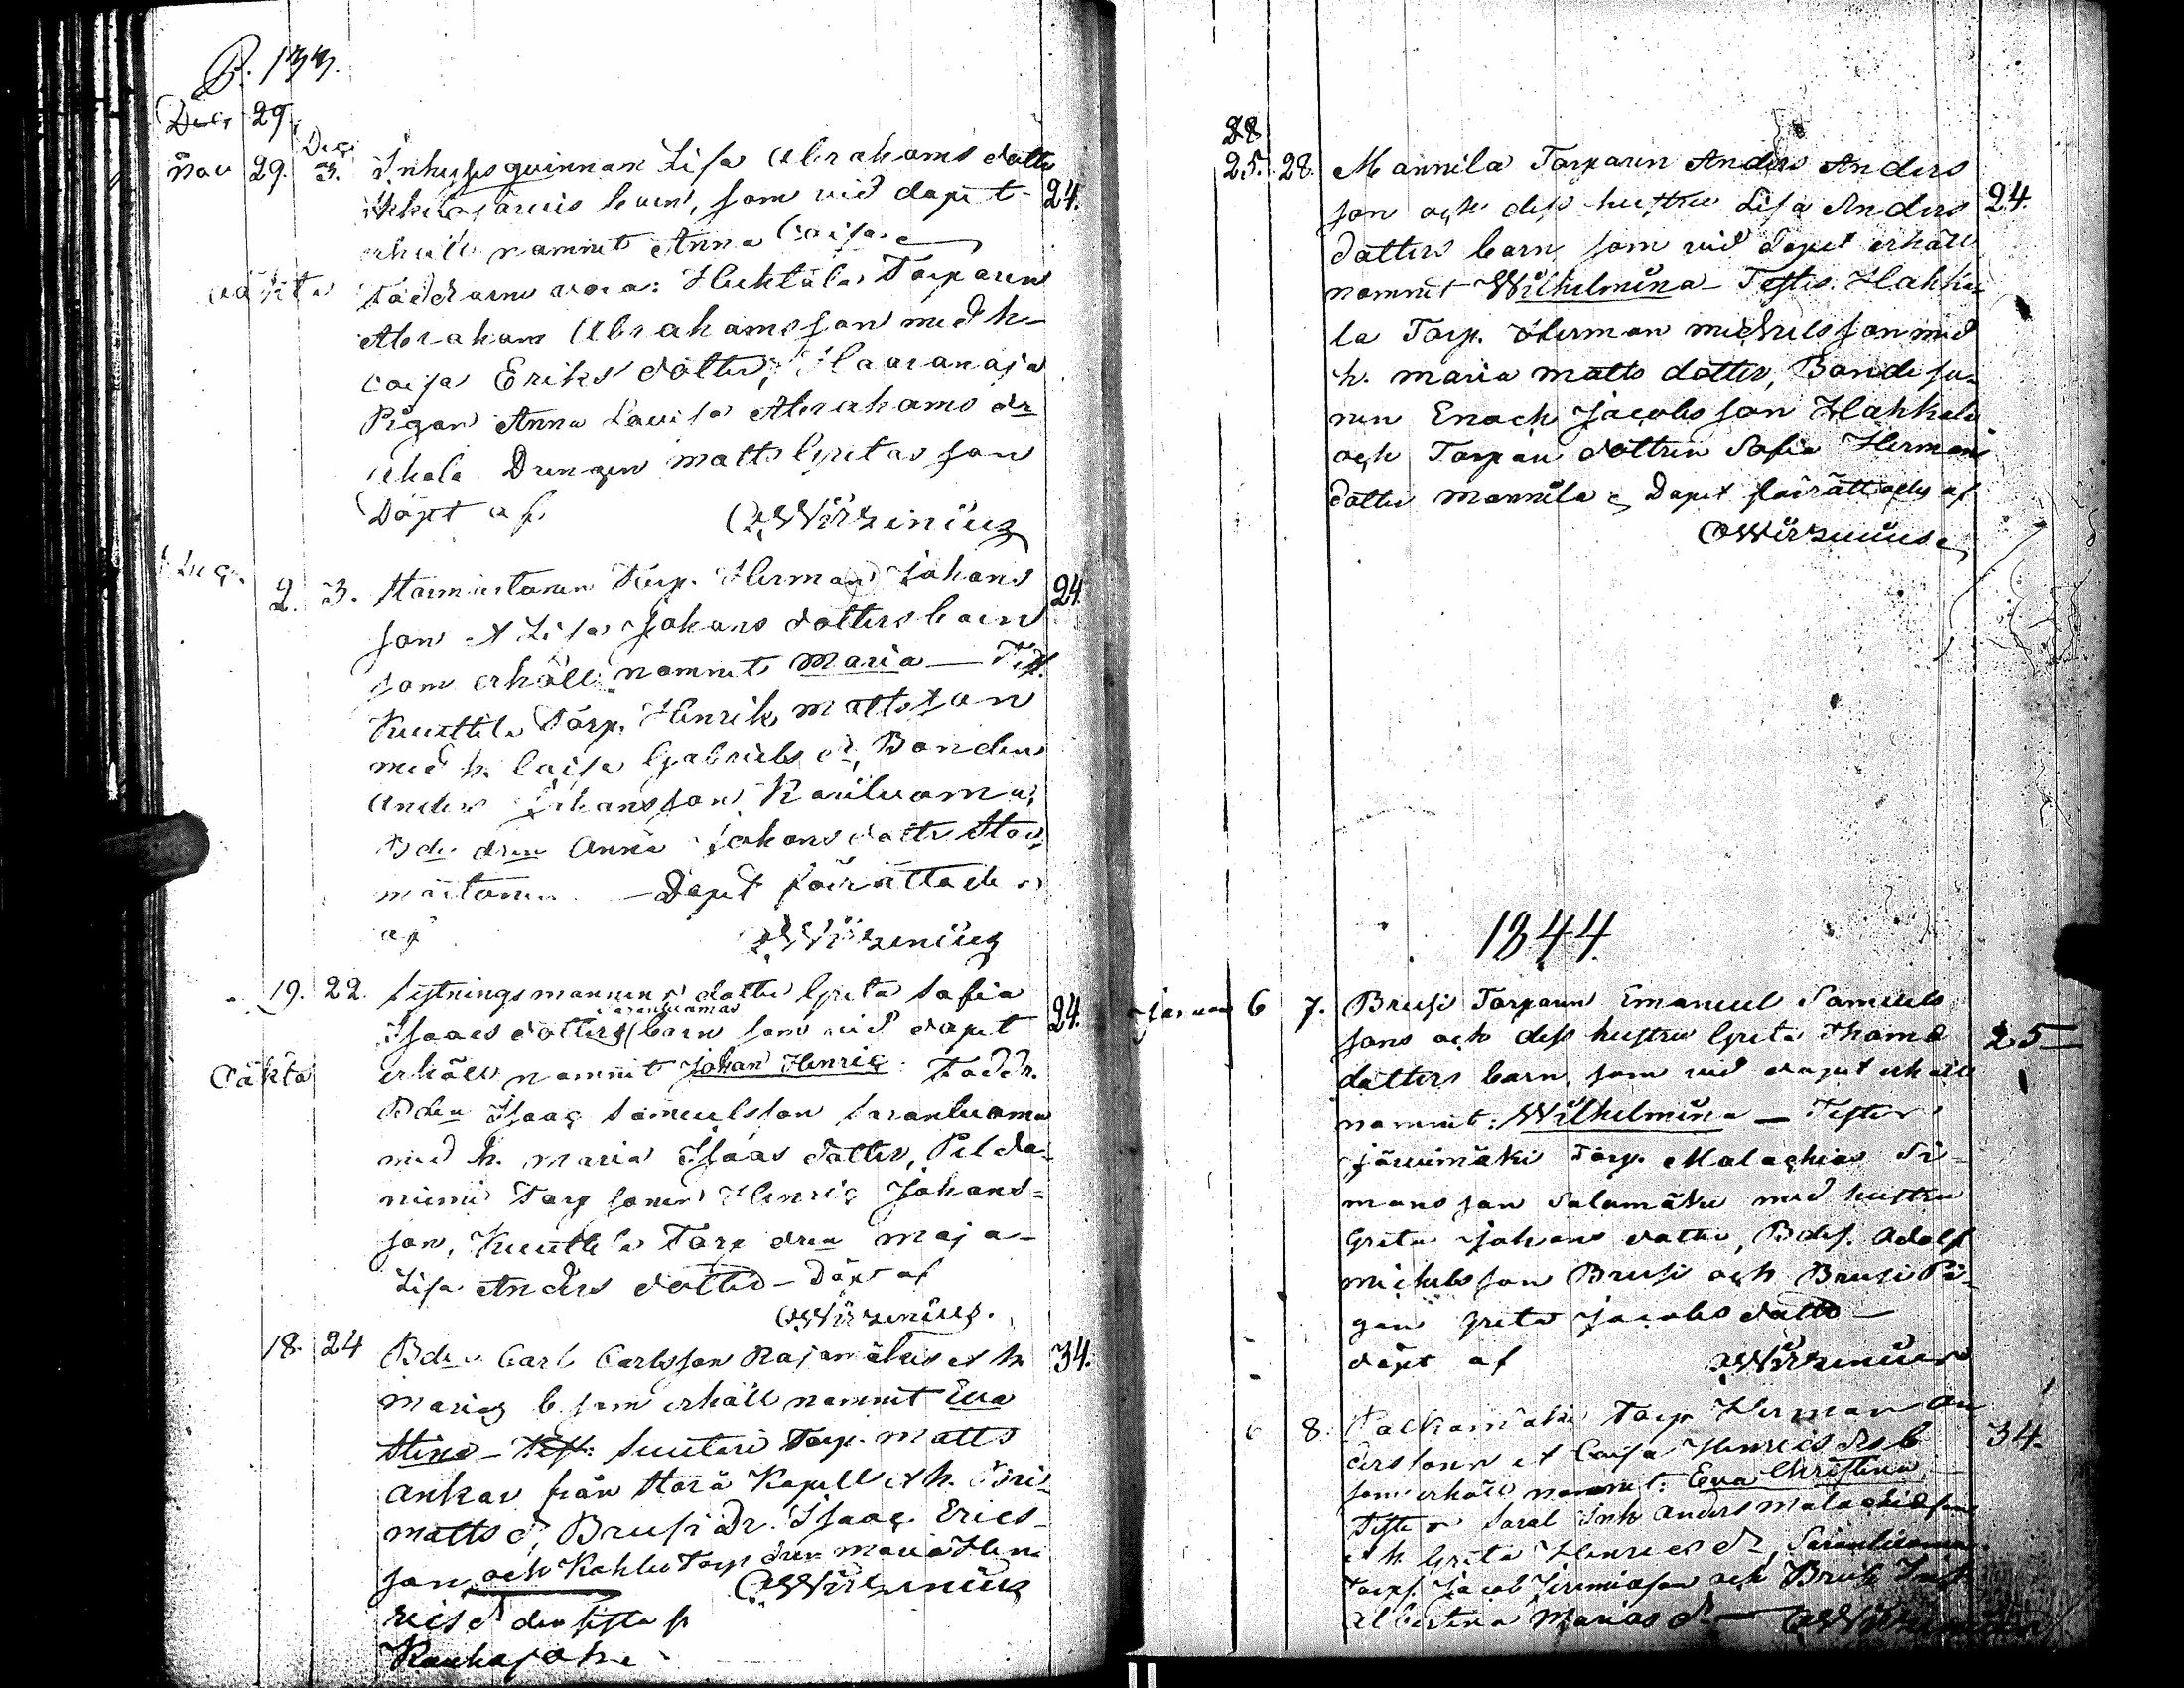 P. 133.
Decr 29.
Nov 29. Dec 3. Inhyses qvinnan Lisa Abrahams dotter
barn, som vid dopet 24.
erhöll namnet Anna Caisa
oäkta Faddrarne voro: Huhtala Torparen
Abraham Abrahamsson med h.
Caisa Eriks dotter, Haaranoja
Pigan Anna Lovisa Abrahams dr
Drengen Matts Gretas son
Döpt af CWirzenius
2. 3. Torp. Herman Johans 24.
son & Lisa Johans dotters barn
som erhöll namnet Maria — Test.
Kuuttila Torp. Henrik Mattsson
med h. Caisa Gabriels dr, Bonden
Anders Johansson Rauiluoma,
Bde dren Anna Johans dotter
Dopet förrättades
af CWirzenius
19. 22. Sytningsmannens dotter Greta Sofia
Saranluomas
Isaacs dotters barn som vid dopet 24.
Oäkta erhöll namnet Johan Henric: Faddr.
Bden Isaac Samuelsson Saranluoma
med h. Maria Isaas dotter, Pelda-
niemi Torp sonen Henric Johans=
son, Kuuttila Torp dren Maja-
Lisa Anders dotter — Döpt af
CWirzenius.
18. 24 Bden Carl Carlsson Rajamäkis et h 34.
Marias b. som erhöll namnet Eva
Stina — Test: Suuteri Torp. Matts
Ankar från Storå Kapell et h. Bri-
matts d, Brusi Dr. Isaac Erics-
son och Kohlu Torp dren Maria Hen
CWirzenius
rics d den sista fr
Kauhajoki
28
25. 28. Mannila Torparen Anders Anders
son och dess hustru Lisa Anders 24.
dotters barn som vid dopet erhöll
namnet Wilhelmina — Testes: Hahka
la Torp. Herman Michelsson med
h. Maria Matts dotter, Bonde so-
nen Enoch Jacobsson Hahkala
och Torpare dottren Sofia Hermans
dotter Mannila, Dopet förrättades af
CWirzenius
1844.
Januari 6 7. Brusi Torparen Emanuel Samuels
sons och dess hustru Greta Thomas 25
dotters barn, som vid dopet erhöll
namnet: Wilhelmina — Testes
Järvimäki Torp. Malachias Si-
mons son Salomäki med hustru
Greta Johans dotter, Bdes. Adolf
Michelsson Brusi och Brusi Pi-
gan Greta Jacobs dotter —
döpt af CWirzenius
6 8. Torp Herman An
derssons et Caisa Henrics drs b 34.
som erhöll namnet: Eva Christina
Testes Inh Anders Malachiasson
et h Greta Henrics dr, Saranluoma
Torps. Jacob Jeremiasson och Brusi Inh
Albertina Marias dr — CWirzenius